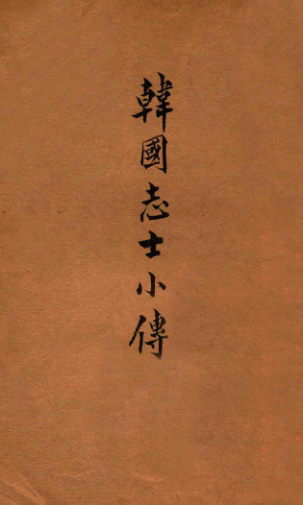 韓國志士小傳